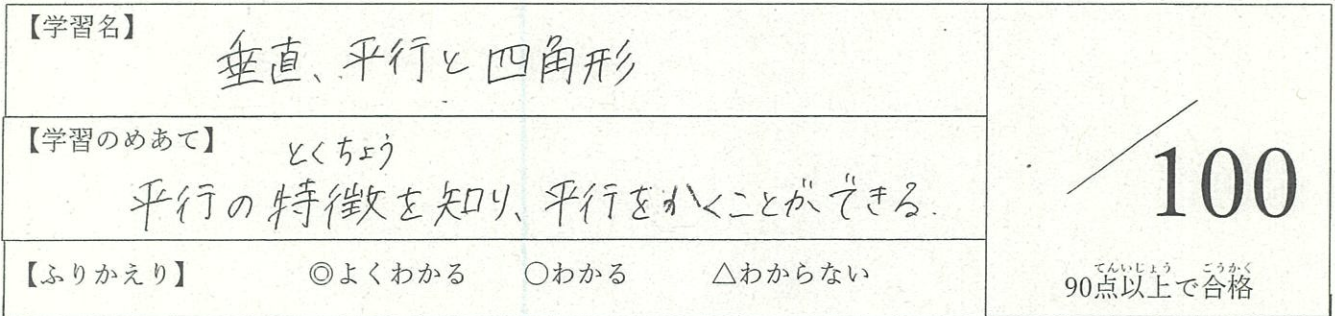 【学習名】
垂直、平行と四角形
【学習のめあて】
とくちょう
平行の特徴を知り、平行をかくことができる.
【ふりかえり】 ◎よくわかる ○わかる △わからない
/100
てんいじょう ごうかく
90点以上で合格